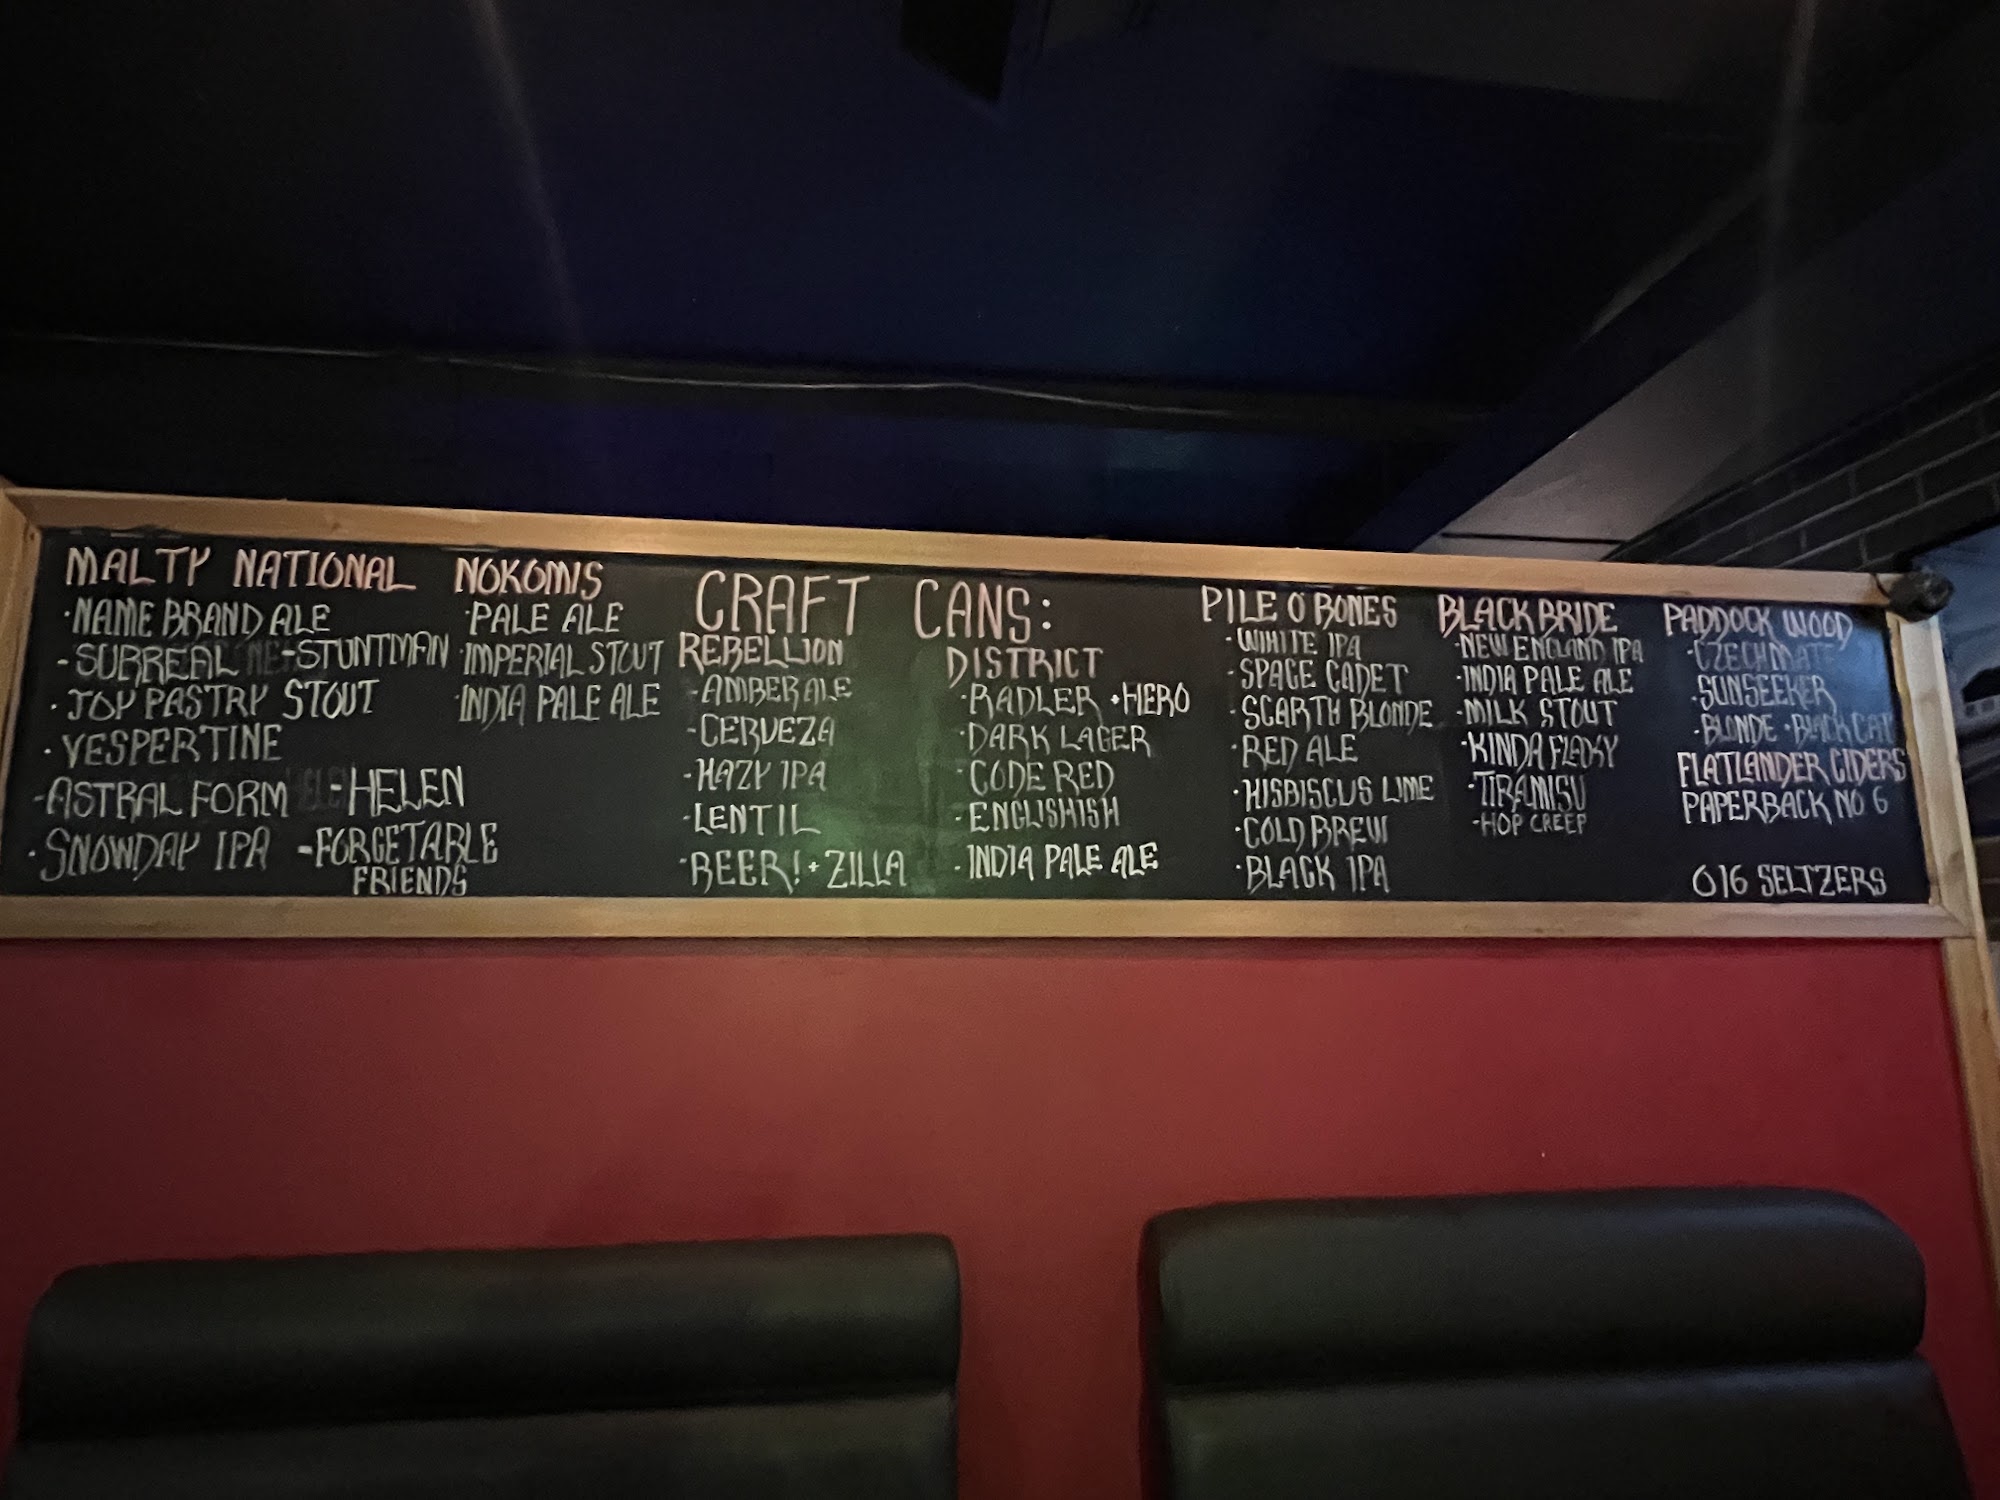 MALTY NATIONAL
·NAME BRAND ALE
-SURREAL -STUNTMAN
·JOY PASTRY STOUT
·VESPERTINE
-ASTRAL FORM -HELEN
·SNOWDAY IPA -FORGETABLE
FRIENDS
NOKOMIS
·PALE ALE
·IMPERIAL STOUT
·INDIA PALE ALE
CRAFT CANS:
REBELLION
-AMBER ALE
-CERVEZA
-HAZY IPA
-LENTIL
-BEER! · ZILLA
DISTRICT
·RADLER ·HERO
·DARK LAGER
·CODE RED
·ENGLISHISH
·INDIA PALE ALE
PILE O BONES
·WHITE IPA
·SPACE CADET
·SCARTH BLONDE
·RED ALE
·HISBISCUS LIME
·COLD BREW
·BLACK IPA
BLACK BRIDE
·NEW ENGLAND IPA
·INDIA PALE ALE
·MILK STOUT
·KINDA FLAKY
·TIRAMISU
·HOP CREEP
PADDOCK WOOD
·CZECHMATE
·SUNSEEKER
·BLONDE ·BLACK CAT
FLATLANDER CIDERS
PAPERBACK NO 6
O16 SELTZERS